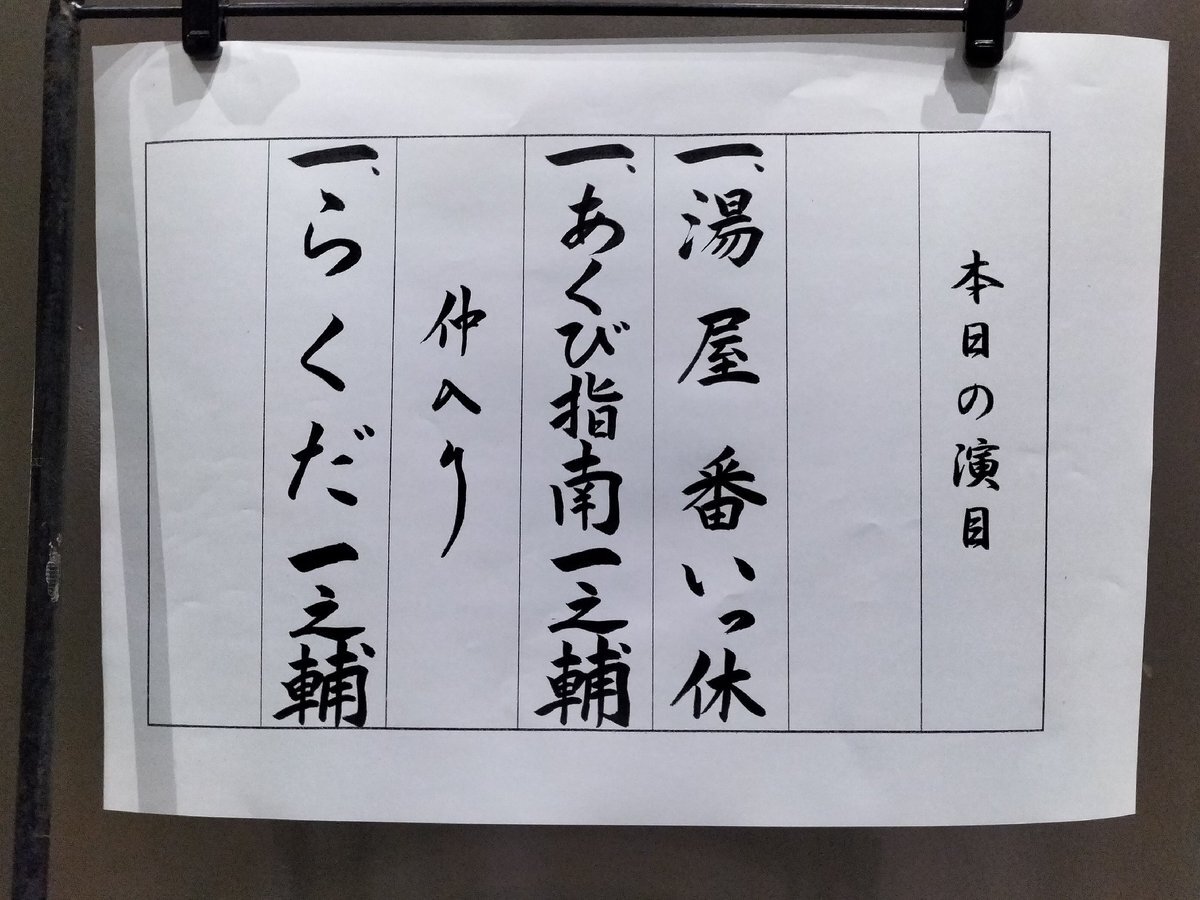 本日の演目
一、湯屋番 いっ休
一、あくび指南 一之輔
仲入り
一、らくだ 一之輔